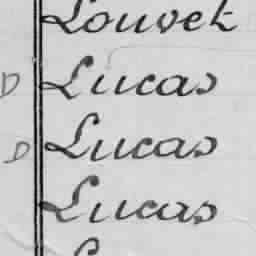 Louvek
D Lucas
D Lucas
Lucas